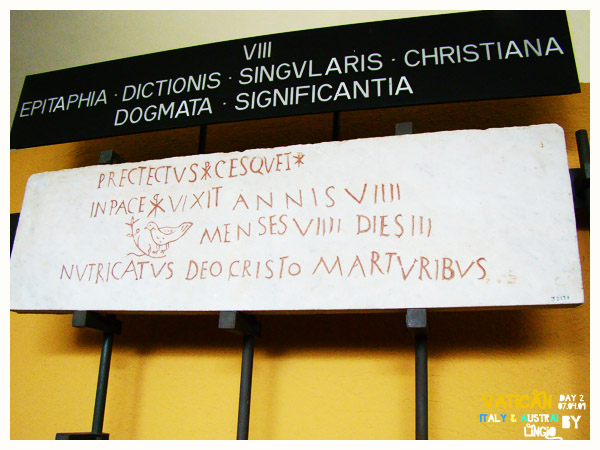 VIII
EPITAPHIA · DICTIONIS · SINGVLARIS · CHRISTIANA
DOGMATA · SIGNIFICANTIA
PRECTECTVS ☧ CESQVET *
INPACE ☧ VIXIT ANNIS VIIII
MENSES VIIII DIES III
NVTRICATVS DEO CRISTO MARTVRIBVS
VATICAN DAY 2
ITALY & BY